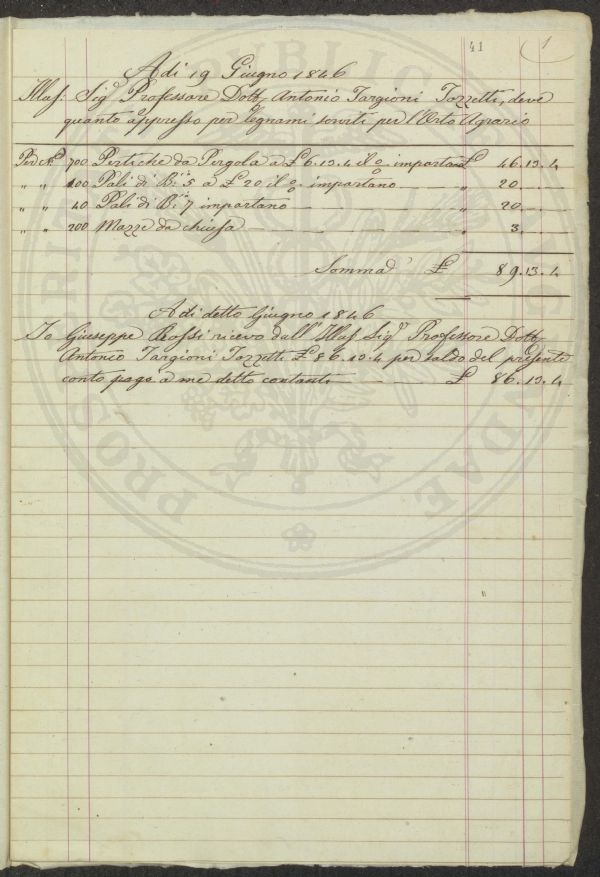 41
1
Adi 19 Giugno 1846
Illus: Sigr Professore Dott Antonio Targioni Tozzetti, deve
quanto appresso per legnami serviti per l'Orto Agrario
Per No 700 Pertiche da Pergola a £ 6.13.4 il %o importano £ 46.13.4
" " 100 Pali di Bi 5 a £ 20 il %o importano " 20
" " 40 Pali di Bi 7 importano " 20
" " 200 Mazze da chiusa " 3
Somma £ 89.13.4
Adi detto Giugno 1846
Io Giuseppe Rossi ricevo dall' Illus Sigr Professore Dott
Antonio Targioni Tozzetti £ 86.13.4 per saldo del presente
conto pagò a me detto contanti £ 86.13.4
PUBLICAE
PROSPERITATI